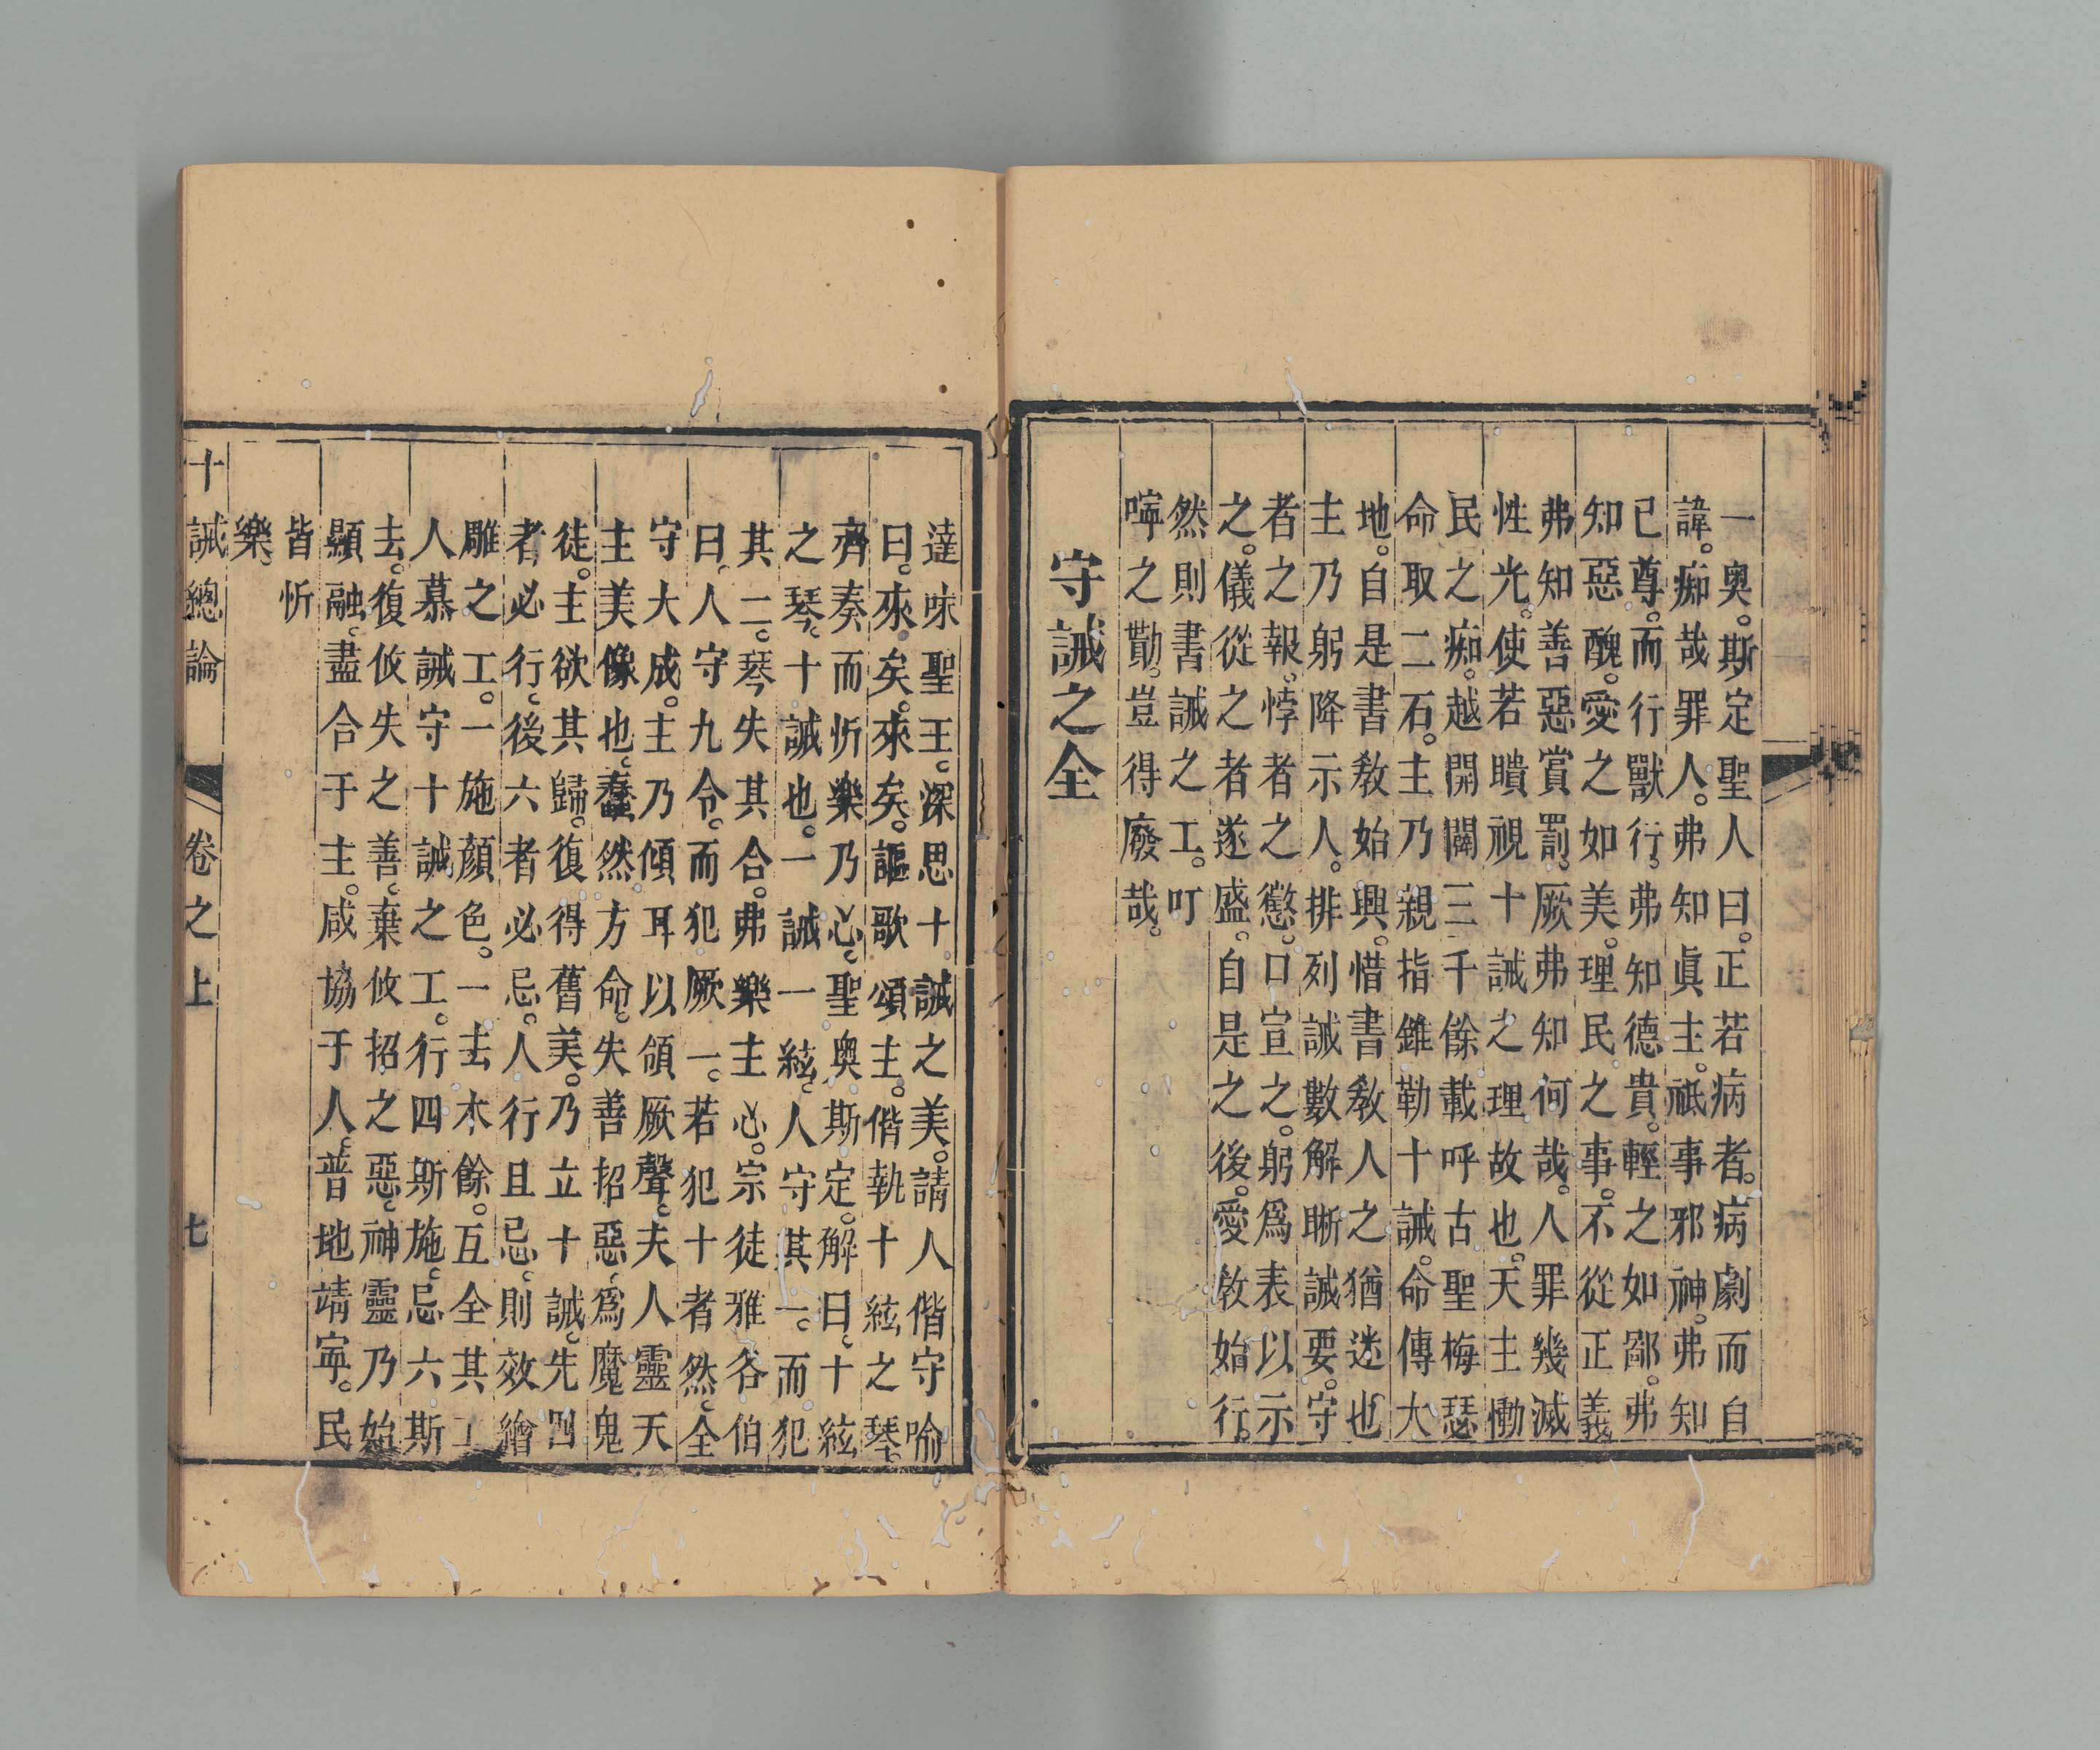 一奧。斯定聖人曰。正若病者。病劇而自
諱。痴哉罪人。弗知眞主。祇事邪神。弗知
已尊。而行獸行。弗知德貴。輕之如鄙。弗
知惡醜。愛之如美。理民之事。不從正義。
弗知善惡賞罰。厥弗知何哉。人罪幾滅
性光。使若瞶視十誡之理故也。天主慟
民之痴。越開闢三千餘載呼古聖梅瑟
命取二石。主乃親指錐勒十誡。命傳大
地。自是書教始興。惜書教人之猶迷也
主乃躬降示人。排列誡數解晣誡要。守
者之報。悖者之懲。口宣之。躬爲表以示
之。儀從之者遂盛。自是之後。愛教始行。
然則書誡之工。叮
嚀之勤。豈得廢哉。
守誡之全
達味聖王。深思十誡之美。請人偕守喻
曰。來矣。來矣。謳歌頌主。偕執十絃之琴。
齊奏而忻樂乃心。聖奧斯定。解曰。十絃
之琴。十誡也。一誡一絃。人守其一。而犯
其二。琴失其合。弗樂主心。宗徒雅各伯
曰。人守九令。而犯厥一。若犯十者然。全
守大成。主乃傾耳以領厥聲。夫人靈天
主美像也。蠢然方命。失善招惡。爲魔鬼
徒。主欲其歸。復得舊美。乃立十誡。先四
者必行。後六者必忌。人行且忌。則效繪
雕之工。一施顔色。一去木餘。互全其工
人慕誡守十誡之工。行四斯施。忌六斯
去。復攸失之善。棄攸招之惡。神靈乃始
顯融。盡合于主。咸協于人。普地靖寧。民
皆忻
樂。
十誡總論 卷之上 七